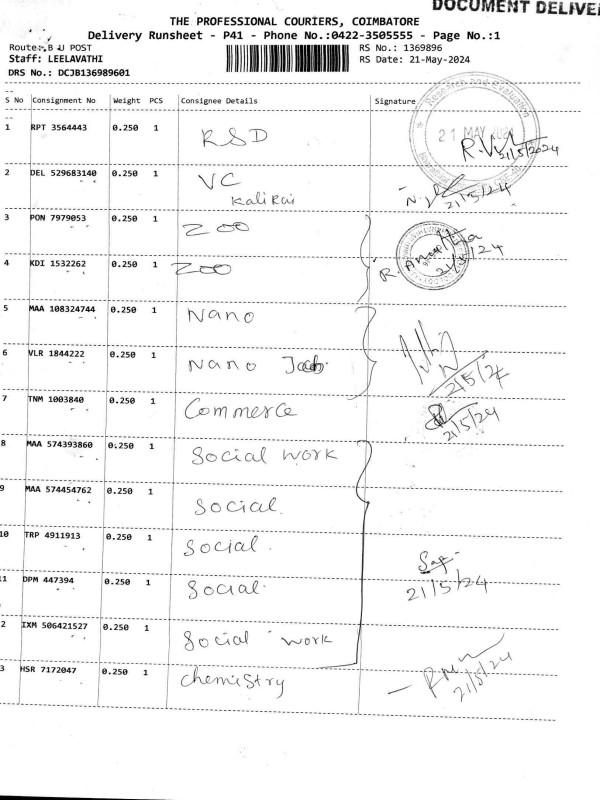 DOCUMENT DELIVE
THE PROFESSIONAL COURIERS, COIMBATORE
Delivery Runsheet - P41 - Phone No.:0422-3505555 - Page No.:1
Route: B U POST
RS No.: 1369896
Staff: LEELAVATHI
RS Date: 21-May-2024
DRS No.: DCJB136989601
S No Consignment No Weight PCS Consignee Details Signature
1 RPT 3564443 0.250 1 RSD
Research and Evaluation
21 MAY 2024
21/5/2024
2 DEL 529683140 0.250 1 VC
Kalirai
21/5/24
3 PON 7979053 0.250 1 ZOO
4 KDI 1532262 0.250 1 ZOO
21/5/24
5 MAA 108324744 0.250 1 Nano
6 VLR 1844222 0.250 1 Nano
21/5/24
7 TNM 1003840 0.250 1 Commerce
21/5/24
8 MAA 574393860 0.250 1 Social work
9 MAA 574454762 0.250 1 Social.
10 TRP 4911913 0.250 1 Social.
11 DPM 447394 0.250 1 Social.
21/5/24
2 IXM 506421527 0.250 1 Social work
3 HSR 7172047 0.250 1 chemistry
21/5/24